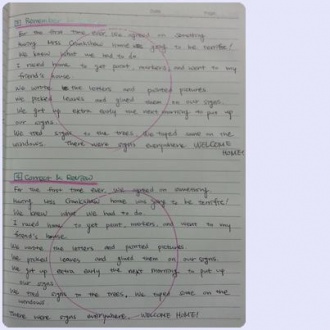 For the first time ever, we agreed on something.
having Miss Crankshaw home was going to be terrific!
We knew what we had to do.
I raced home to get paint, markers, and went to my
friend's house.
We wrote the letters and painted pictures.
We picked leaves and glued them to our signs.
We got up extra early the next morning to put up
our signs.
We tied signs to the trees. We taped some on the
windows. There were signs everywhere. WELCOME
HOME!
4 Correct & Review
For the first time ever, we agreed on something.
having Miss Crankshaw home was going to be terrific!
We knew what we had to do.
I raced home to get paint, markers and went to my
friend's house.
We wrote the letters and painted pictures.
We picked leaves and glued them on our signs.
We got up extra early the next morning to put up
our signs.
We tied sign to the trees, We taped some on the
windows.
There were signs everywhere. WELCOME HOME!